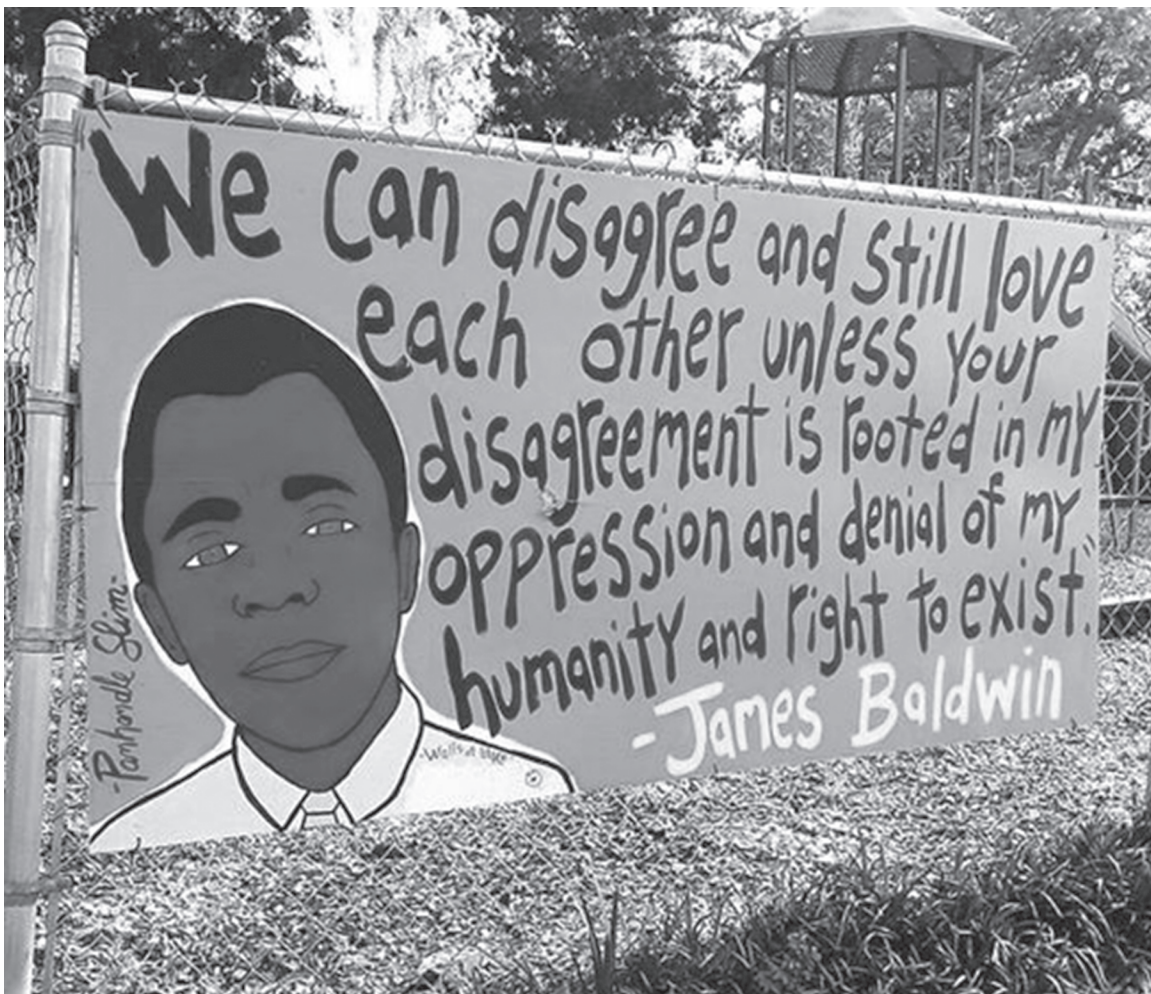 We can disagree and still love
each other unless your
disagreement is rooted in my
oppression and denial of my
humanity and right to exist."
-James Baldwin
-Panhandle Slim-